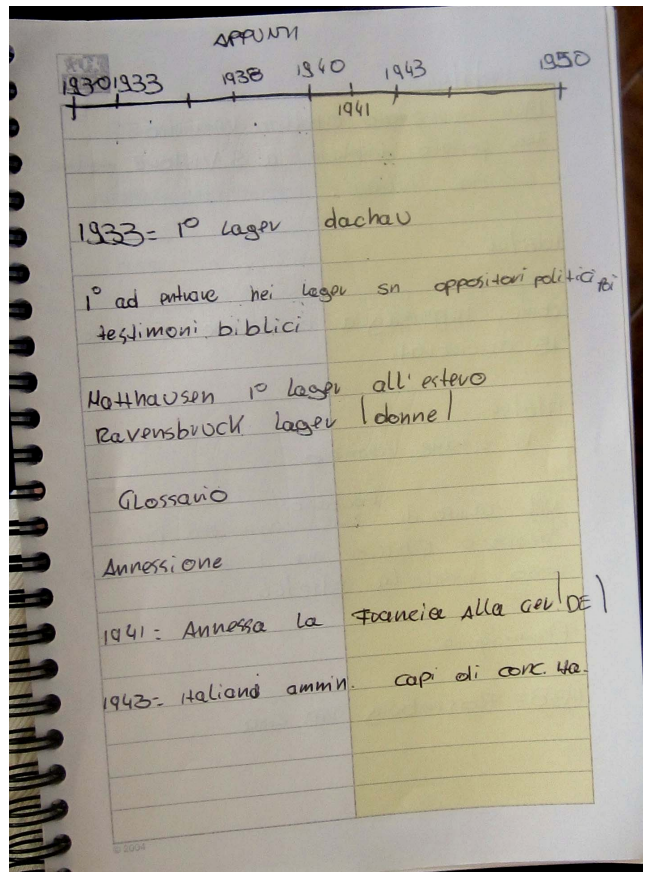 APPUNTI
1930 1933 1938 1940 1943 1950
1941
1933= 1° Lager dachau
1° ad entrare nei lager sn oppositori politici poi
testimoni biblici
Matthausen 1° lager all'estero
Ravensbruck lager (donne)
Glossario
Annessione
1941= Annessa la Francia alla Ger (DE)
1943= italiana ammin. capi di conc. ita.
© 2004